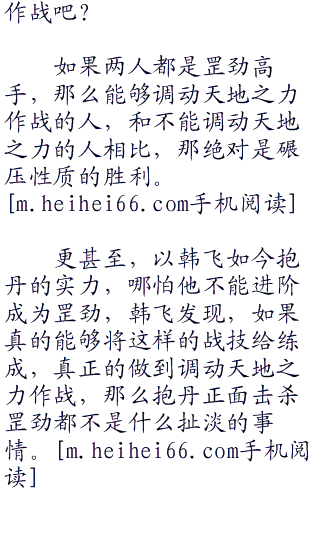 作战吧？
如果两人都是罡劲高
手，那么能够调动天地之力
作战的人，和不能调动天地
之力的人相比，那绝对是碾
压性质的胜利。
[m.heihei66.com手机阅读]
更甚至，以韩飞如今抱
丹的实力，哪怕他不能进阶
成为罡劲，韩飞发现，如果
真的能够将这样的战技给练
成，真正的做到调动天地之
力作战，那么抱丹正面击杀
罡劲都不是什么扯淡的事
情。[m.heihei66.com手机阅
读]